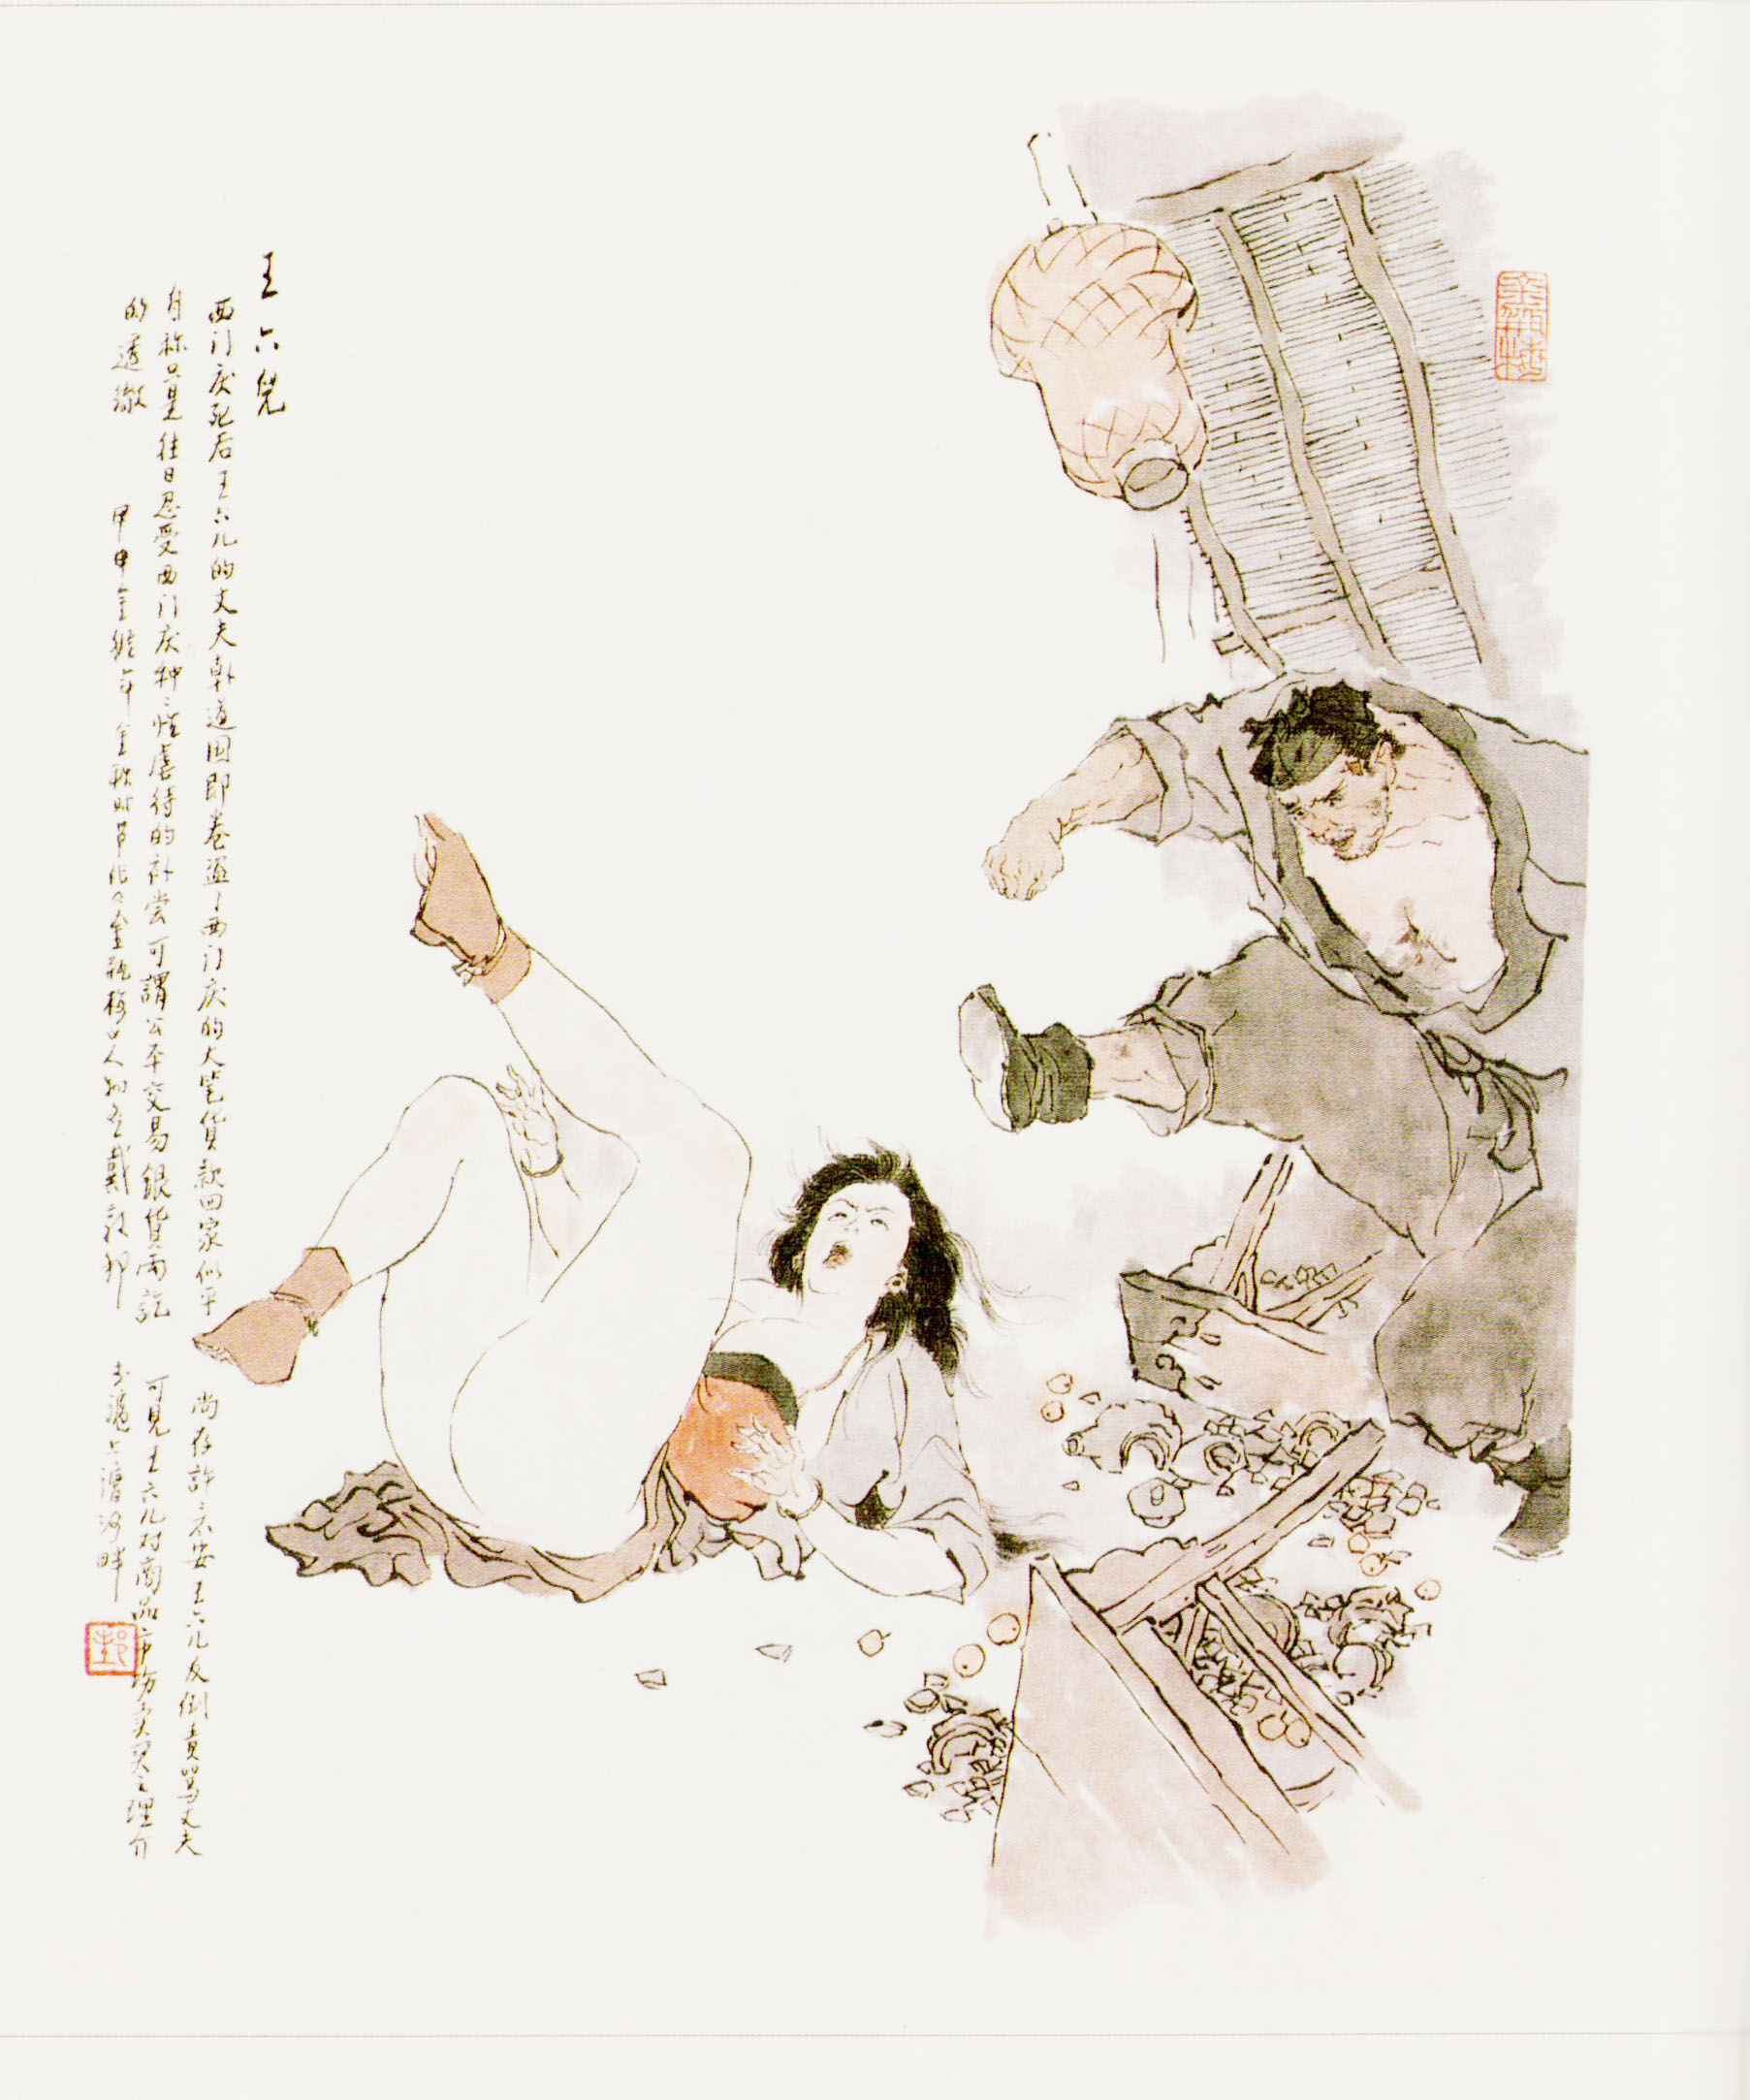 王六兒
西门庆死后王六儿的丈夫韩道国即卷盗了西门庆的大笔货款回家似乎尚存許々不安王六儿反倒责骂丈夫
自称只是往日忍受西门庆种々性虐待的补尝可謂公平交易銀货两訖可見王六儿对商品市场买卖之理介
的透澈
甲申金猴年金秋时节作《金瓶梅》人物 戴敦邦 于滬上漕河畔
金瓶梅
邦